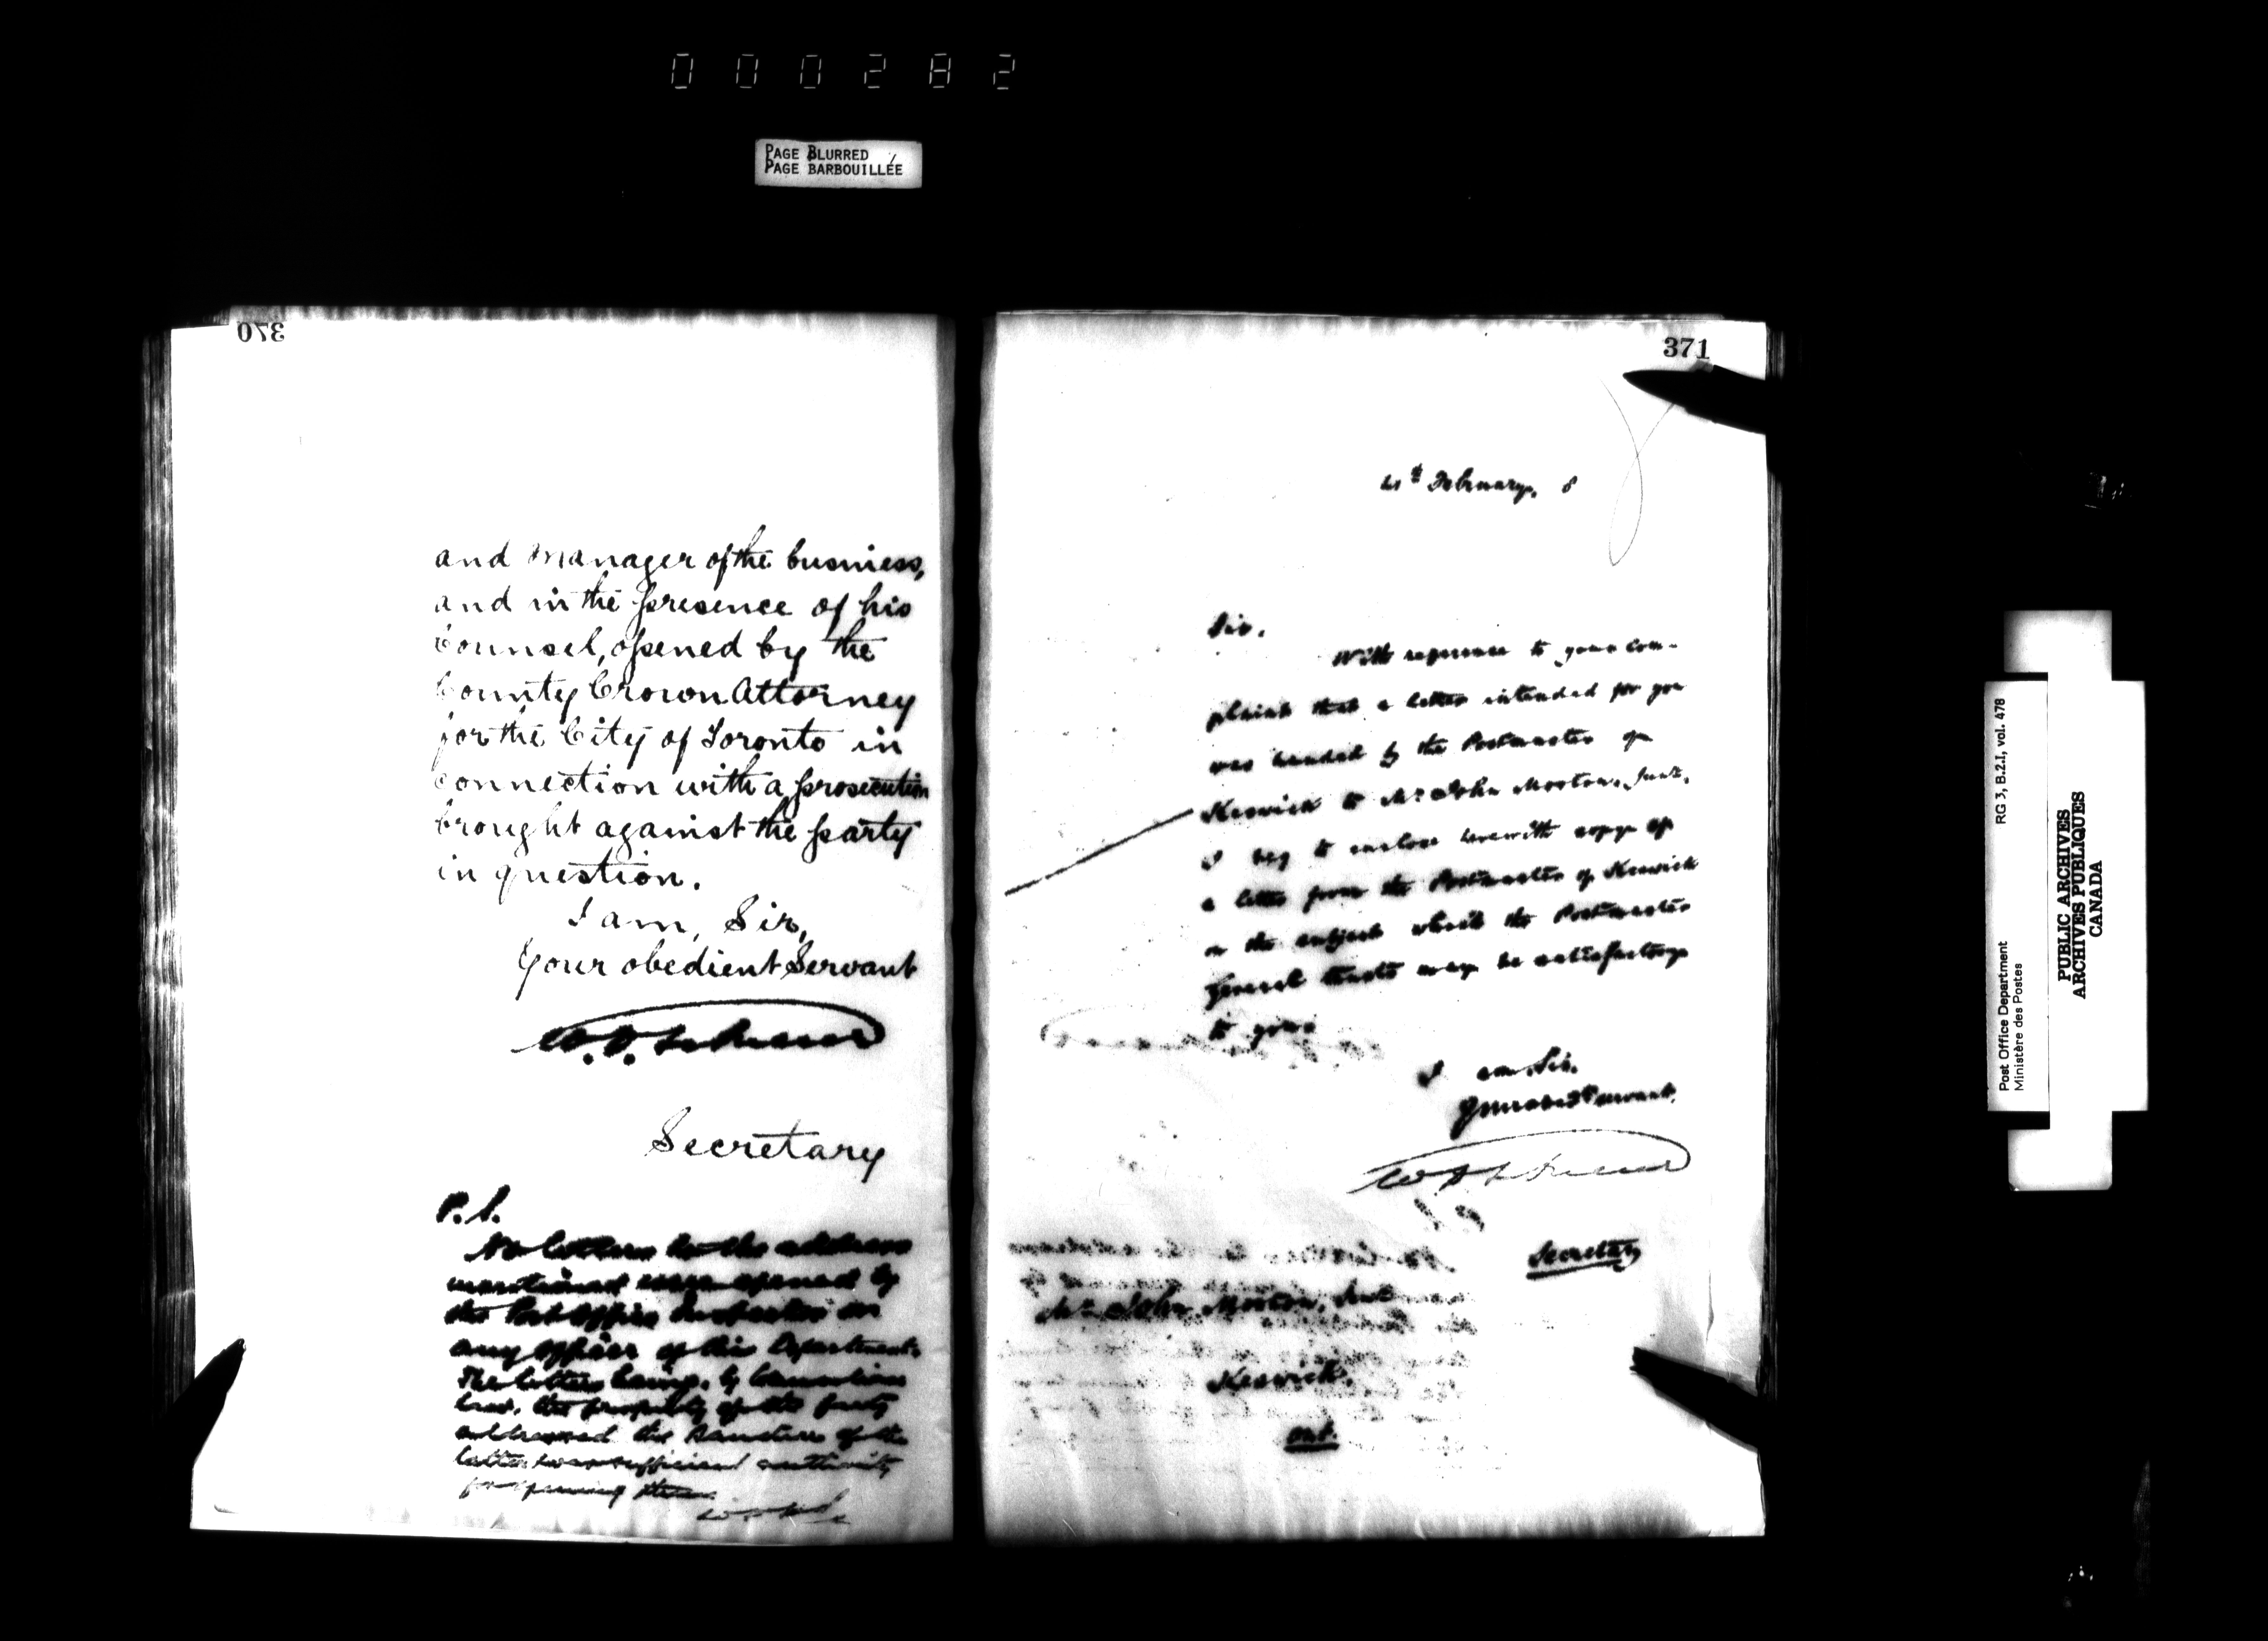 000282
PAGE BLURRED
PAGE BARBOUILLÉE
370
and manager of the business,
and in the presence of his
Counsel, opened by the
County Crown Attorney
for the City of Toronto in
connection with a prosecution
brought against the party
in question.
I am, Sir,
Your obedient Servant
Secretary
P.S.
No letters to the address
mentioned were opened by
the Post Office Inspector or
any officer of this Department.
The letters being, by Canadian
law, the property of the party
addressed the sanction of the
latter was sufficient authority
for opening them.
371
4th February, 8
Sir,
With reference to your com-
plaint that a letter intended for you
was handed by the Postmaster of
Keswick to Mr John Morton, Junr.
I beg to enclose herewith copy of
a letter from the Postmaster of Keswick
on the subject which the Postmaster
General trusts may be satisfactory
to you.
I am, Sir,
Your obedt servant,
Secretary
Mr John Morton, Senr
Keswick,
Ont.
RG 3, B.2.I, vol. 478
Post Office Department
Ministère des Postes
PUBLIC ARCHIVES
ARCHIVES PUBLIQUES
CANADA